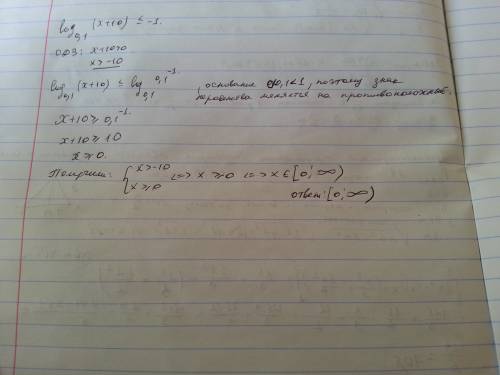 log₀,₁ (x+10) ≤ -1.
ОДЗ: x+10>0
x>-10
log₀,₁ (x+10) ≤ log₀,₁ 0,1⁻¹. , основание 0,1<1, поэтому знак
неравенства меняется на противоположный.
x+10 ≥ 0,1⁻¹.
x+10 ≥ 10
x ≥ 0.
Получим: { x>-10
x≥0 <=> x ≥ 0 <=> x ∈ [0; ∞)
ответ: [0; ∞)